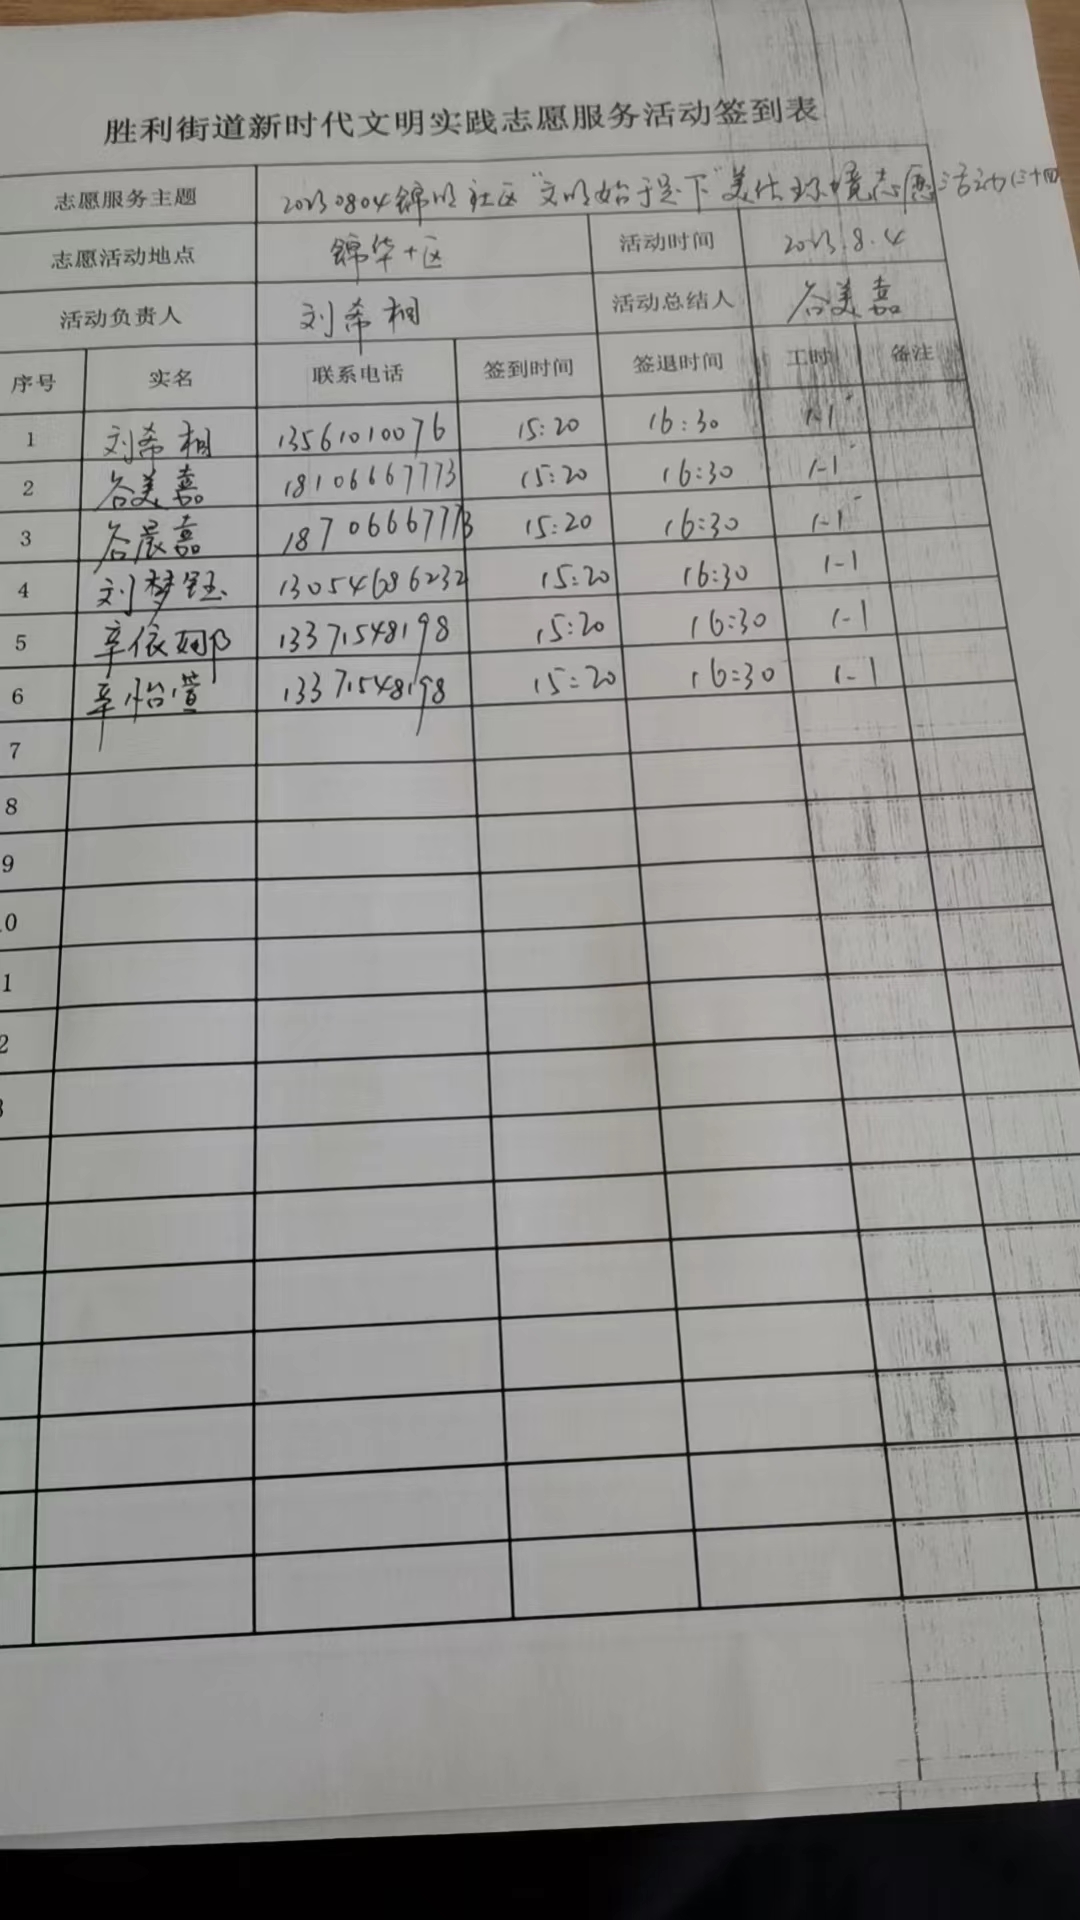 胜利街道新时代文明实践志愿服务活动签到表
志愿服务主题 20230804锦明社区“文明始于足下”美化环境志愿活动(三十四
志愿活动地点 锦华十区 活动时间 2023.8.4
活动负责人 刘希桐 活动总结人 谷美嘉
序号 实名 联系电话 签到时间 签退时间 工时 备注
1 刘希桐 13561010076 15:20 16:30 1.1
2 谷美嘉 18106667773 15:20 16:30 1.1
3 谷晨嘉 18706667773 15:20 16:30 1.1
4 刘梦钰 13054686232 15:20 16:30 1.1
5 辛依娜 13371548198 15:20 16:30 1.1
6 辛怡萱 13371548198 15:20 16:30 1.1
7
8
9
0
1
2
3